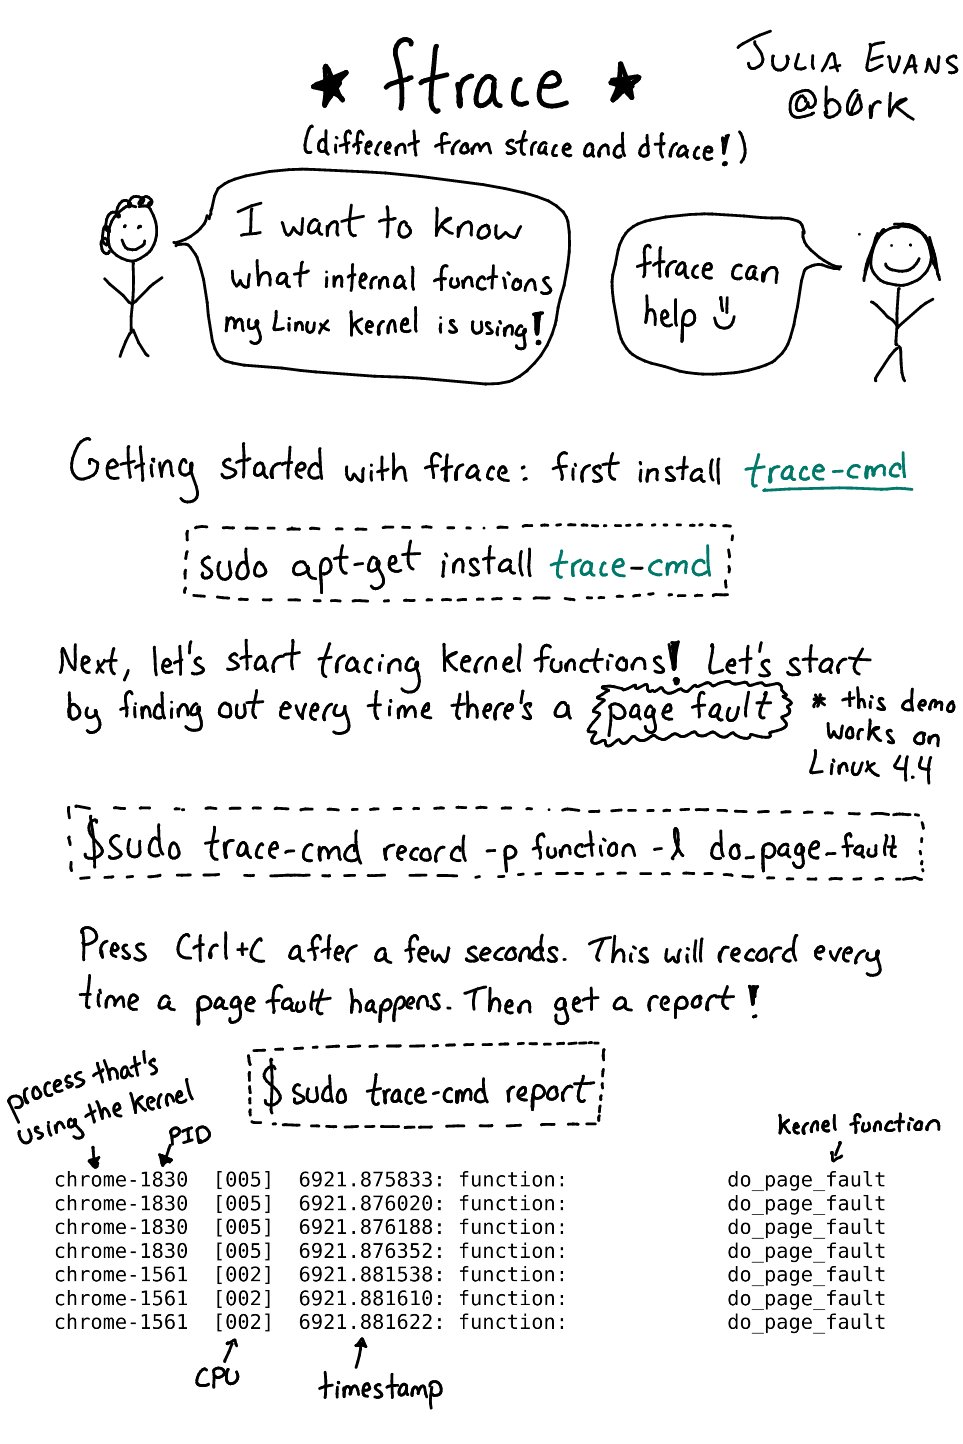 ★ ftrace ★
JULIA EVANS
@b0rk
(different from strace and dtrace!)
I want to know
what internal functions
my Linux kernel is using!
ftrace can
help
Getting started with ftrace: first install trace-cmd
sudo apt-get install trace-cmd
Next, let's start tracing kernel functions! Let's start
by finding out every time there's a page fault
* this demo
works on
Linux 4.4
$sudo trace-cmd record -p function -l do_page_fault
Press Ctrl+C after a few seconds. This will record every
time a page fault happens. Then get a report!
$ sudo trace-cmd report
process that's
using the kernel
PID
kernel function
chrome-1830 [005] 6921.875833: function: do_page_fault
chrome-1830 [005] 6921.876020: function: do_page_fault
chrome-1830 [005] 6921.876188: function: do_page_fault
chrome-1830 [005] 6921.876352: function: do_page_fault
chrome-1561 [002] 6921.881538: function: do_page_fault
chrome-1561 [002] 6921.881610: function: do_page_fault
chrome-1561 [002] 6921.881622: function: do_page_fault
CPU
timestamp